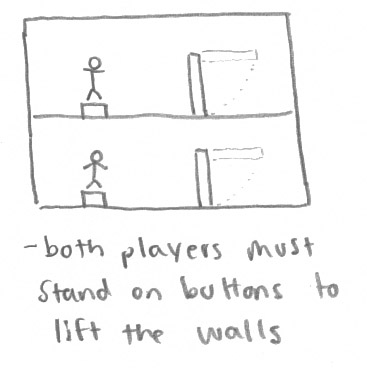 -both players must
stand on buttons to
lift the walls